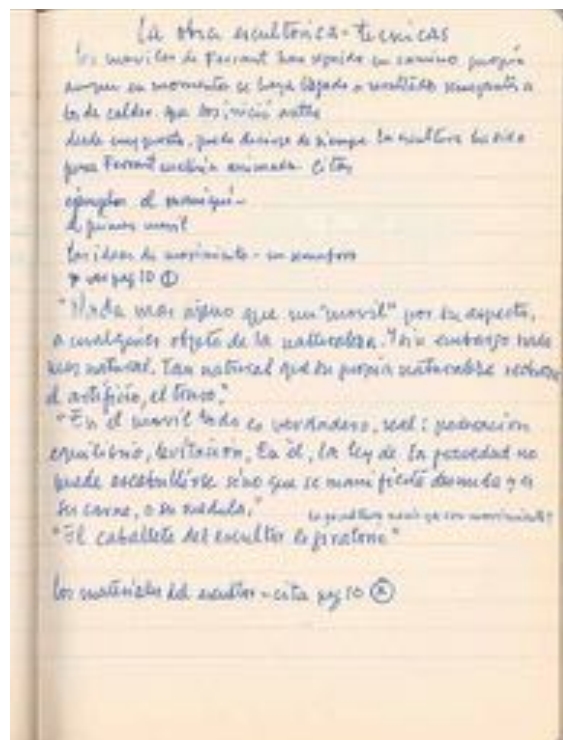 La obra escultorica - tecnicas
los moviles de Ferrant han seguido un camino propio
aunque en momentos se haya llegado a resultados semejantes a
los de calder. que los inició antes
desde muy pronto, puede decirse de siempre la escultura ha sido
para Ferrant materia animada. Citas
ejemplos el maniquí -
el primer movil
las ideas de movimiento - un
ver pag 10 ①
"Nada mas ajeno que un "movil" por su aspecto,
a cualquier objeto de la naturaleza. Y sin embargo nada
mas natural. Tan natural que su propia naturaleza rechaza
el artificio, el truco."
"En el movil todo es verdadero, real:
equilibrio, levitación, En él, la ley de la gravedad no
puede escabullirse sino que se manifiesta desnuda y es
su carne, o su medula."
la escultura nacio ya con movimiento?
"El caballete del escultor es giratorio"
los materiales del escultor - cita pag 10 ⓧ